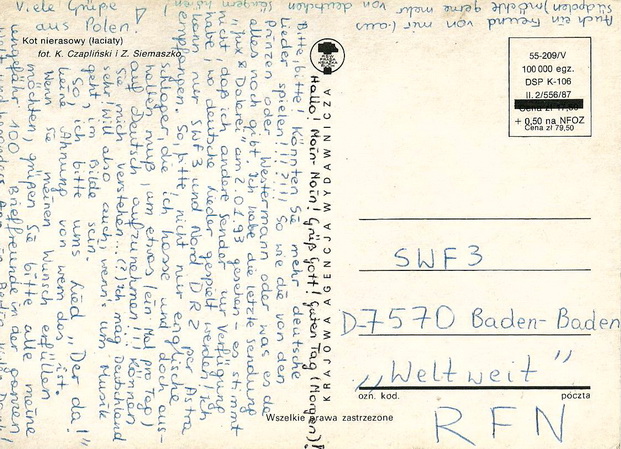 Viele Grüße
aus Polen!
Kot nierasowy (łaciaty)
fot. K. Czapliński i Z. Siemaszko
Hallo! Moin-Moin! Grüß Gott! Guten Tag (Morgen)!
Bitte, bitte! Könnten Sie mehr deutsche
Lieder spielen!!!?!!! So wie die von den
Prinzen oder Westermann oder was es da
alles noch gibt. Ich habe die letzte Sendung
"Jux & Dallerei" am 2.01.93 gesehen - es stimmt
nicht, daß ich andere Sender zur Verfügung
habe, wo deutsche Lieder gespielt werden! Ich
kann nur SWF3 und Nord/DR2 per Astra
empfangen. So, bitte, nicht nur englische
Schlager, die ich hasse und doch aus-
wählen muß, um etwas (ein Mal pro Tag)
auf Deutsch aufzunehmen!!! Können
Sie mich verstehen...? Ich mag Deutschland
sehr! Will also auch, wenn's um Musik
geht, im Bilde sein.
So, ich bitte ums Lied "Der da!"
keine Ahnung von wem das ist.
Wenn Sie meinen Wunsch erfüllen
möchten, grüßen Sie bitte alle meine
ungefähr 100 Brieffreunde in der ganzen
Auch ein Freund von mir (aus
Südpolen) möchte gerne mehr von deutschen
Sängern hören!
KRAJOWA AGENCJA WYDAWNICZA
55-209/V
100 000 egz.
DSP K-106
II. 2/556/87
+ 0,50 na NFOZ
Cena zł 79,50
SWF3
D-7570 Baden-Baden
„Weltweit"
ozn. kod. poczta
RFN
Wszelkie prawa zastrzeżone